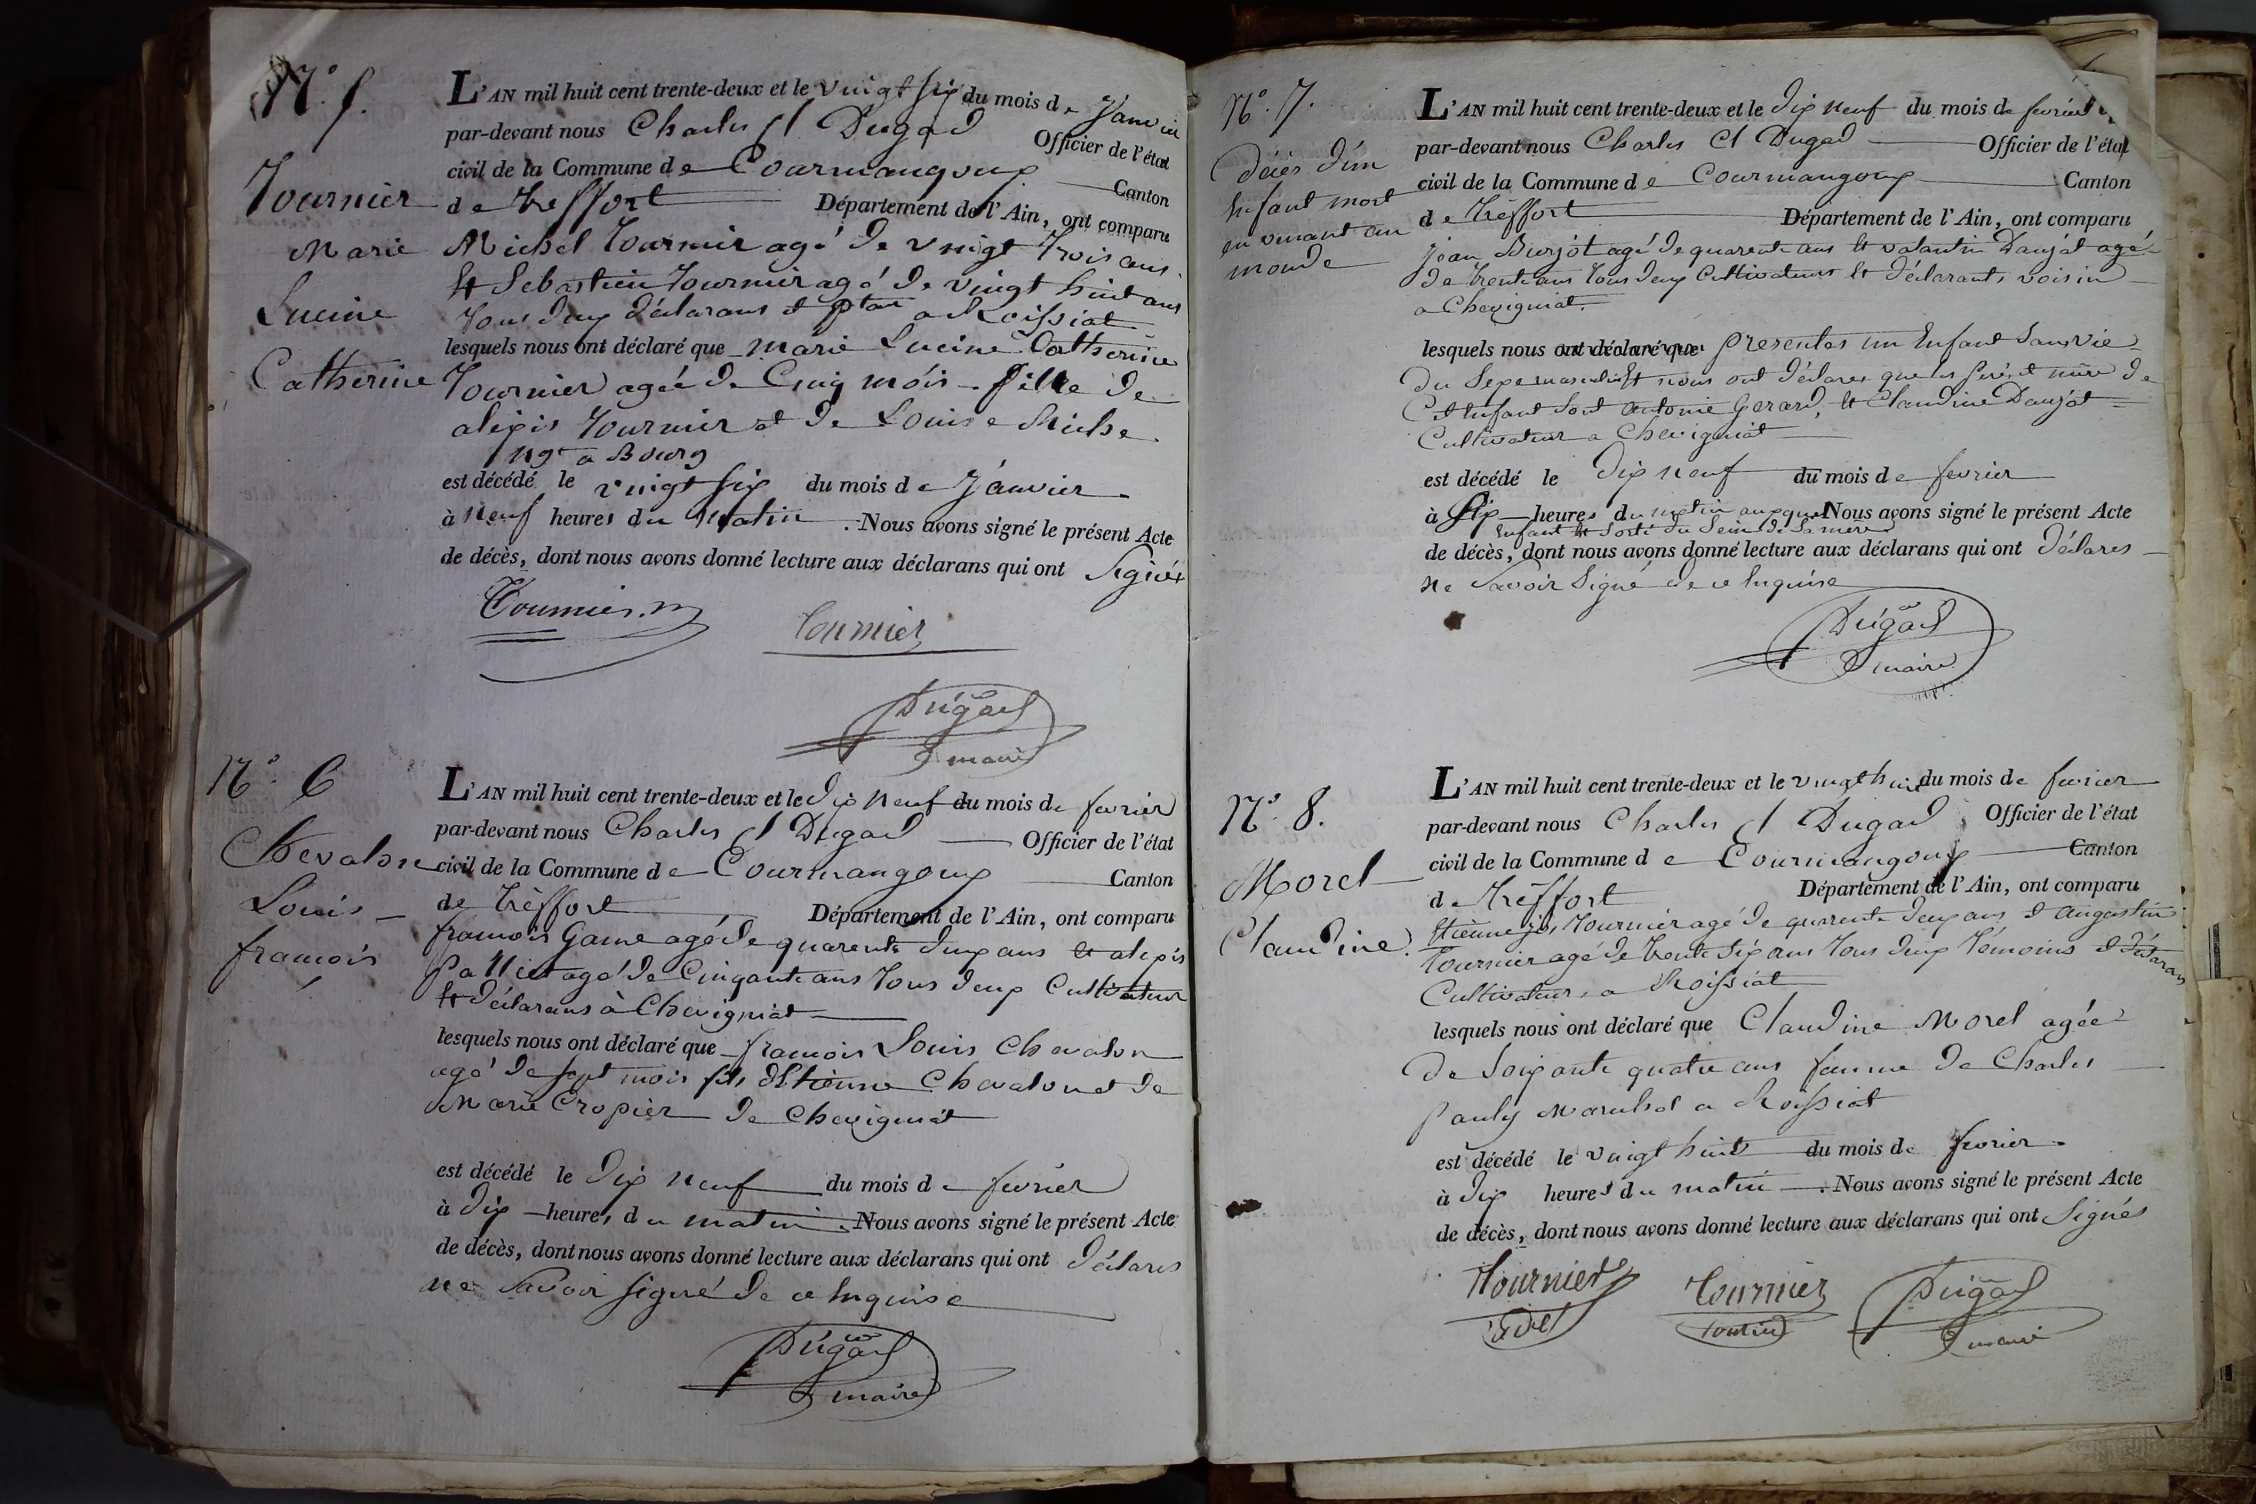 N.° 5.
Tournier
Marie
Lucine
Catherine
L'AN mil huit cent trente-deux et le vingt six du mois de Janvier
par-devant nous Charles Ct Dugad Officier de l'état
civil de la Commune de Courmangoux Canton
de Treffort Département de l'Ain, ont comparu
Michel Tournier agé de vingt trois ans
et Sebastien Tournier agé de vingt huit ans
tous deux déclarans et ptaire a Roissiat
lesquels nous ont déclaré que marie Lucine Catherine
Tournier agée de Cinq mois fille de
alexis Tournier et de Louise
Ngt a Bourg
est décédé le vingt six du mois de Janvier
à Neuf heures du Matin. Nous avons signé le présent Acte
de décès, dont nous avons donné lecture aux déclarans qui ont Signés
Tournier. m
Tournier
Dugad
maire
N.° 6
Chevalon
Louis
francois
L'AN mil huit cent trente-deux et le dix Neuf du mois de fevrier
par-devant nous Charles Ct Dugad Officier de l'état
civil de la Commune de Courmangoux Canton
de Treffort Département de l'Ain, ont comparu
francois Game agé de quarente deux ans et alexis
agé de Cinqante ans tous deux Cultivateur
et déclarans à Chevigniat
lesquels nous ont déclaré que francois Louis Chevalon
agé de sept mois fils d'Etienne Chevalon et de
Marie Cropier de Chevigniat
est décédé le dix neuf du mois de fevrier
à dix heures du matin. Nous avons signé le présent Acte
de décès, dont nous avons donné lecture aux déclarans qui ont déclares
ne savoir signé de ce Enquise
Dugad
maire
N.° 7.
Décès d'un
Enfant mort
en venant au
monde
L'AN mil huit cent trente-deux et le dix neuf du mois de fevrier
par-devant nous Charles Ct Dugad Officier de l'état
civil de la Commune de Courmangoux Canton
de Treffort Département de l'Ain, ont comparu
Jean Burjot agé de quarente ans et valantin Daujat agé
de trente ans tous deux Cultivateurs et déclarants voisin
a Chevigniat.
lesquels nous ont déclaré que presentes un Enfant Sans vie
du Sexe masculin et nous ont déclares que les père et mère de
Cet Enfant sont antoine Gerard, et Claudine Daujat
Cultivateur a Chevigniat
est décédé le dix neuf du mois de fevrier
à Six heures du matin auxquel Nous avons signé le présent Acte
Enfant est sorti du Sein de Sa mère
de décès, dont nous avons donné lecture aux déclarans qui ont déclares
Ne savoir Signé de ce Enquise
Dugad
maire
N.° 8.
Morel
Claudine.
L'AN mil huit cent trente-deux et le vingt huit du mois de fevrier
par-devant nous Charles Ct Dugad Officier de l'état
civil de la Commune de Courmangoux Canton
de Treffort Département de l'Ain, ont comparu
Etienne js, Tournier agé de quarente deux ans et augustin
Tournier agé de trente six ans tous deux témoins et déclarans
Cultivateurs a Roissiat
lesquels nous ont déclaré que Claudine Morel agée
de Soixante quatre ans femme de Charles
Pauly a Roissiat
est décédé le vingt huit du mois de fevrier
à dix heures du matin. Nous avons signé le présent Acte
de décès, dont nous avons donné lecture aux déclarans qui ont Signés
Tournier
Tournier
Dugad
maire